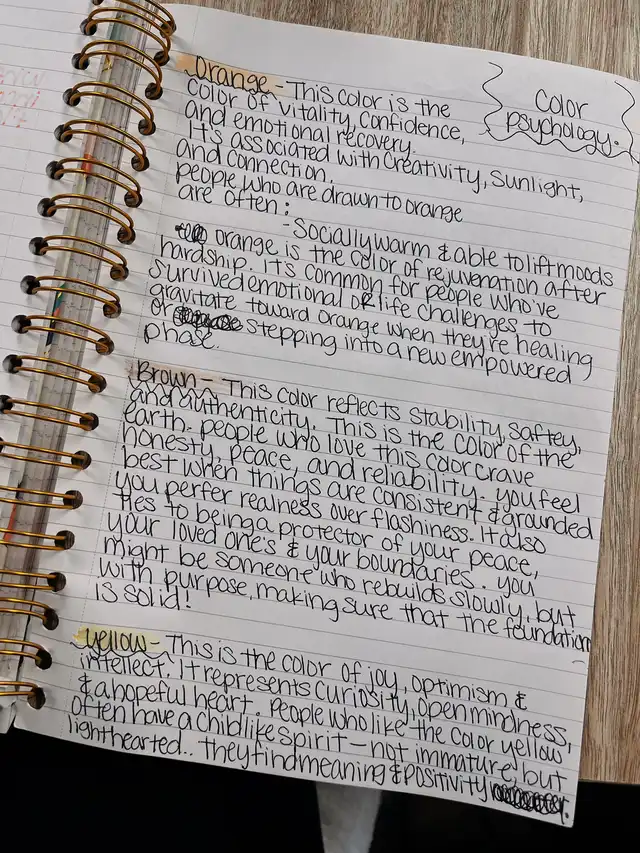 Color
psychology.
Orange - This color is the
color of vitality, confidence,
and emotional recovery.
It's associated with creativity, sunlight,
and connection.
people who are drawn to orange
are often:
- Socially warm & able to lift moods
orange is the color of rejuvenation after
hardship. It's common for people who've
survived emotional or life challenges to
gravitate toward orange when they're healing
or stepping into a new empowered
phase.
Brown - This color reflects stability, saftey,
and authenticity. This is the color of the
earth. people who love this color crave
honesty, peace, and reliability. you feel
best when things are consistent & grounded
you perfer realness over flashiness. It also
ties to being a protector of your peace,
your loved one's & your boundaries. you
might be someone who rebuilds slowly, but
with purpose, making sure that the foundation
is solid!
yellow - This is the color of joy, optimism &
intellect. It represents curiosity, openmindness,
& a hopeful heart. People who like the color yellow
often have a childlike spirit - not immature, but
lighthearted.. they find meaning & positivity